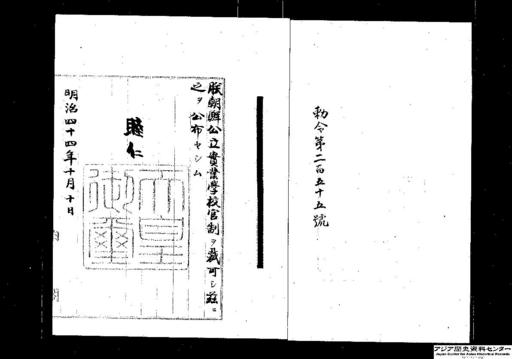 勅令第二百五十五號
朕朝鮮公立實業學校官制ヲ裁可シ茲ニ
之ヲ公布セシム
睦仁
天皇
御璽
明治四十四年十月十日
内閣
アジア歴史資料センター
Japan Center for Asian Historical Records